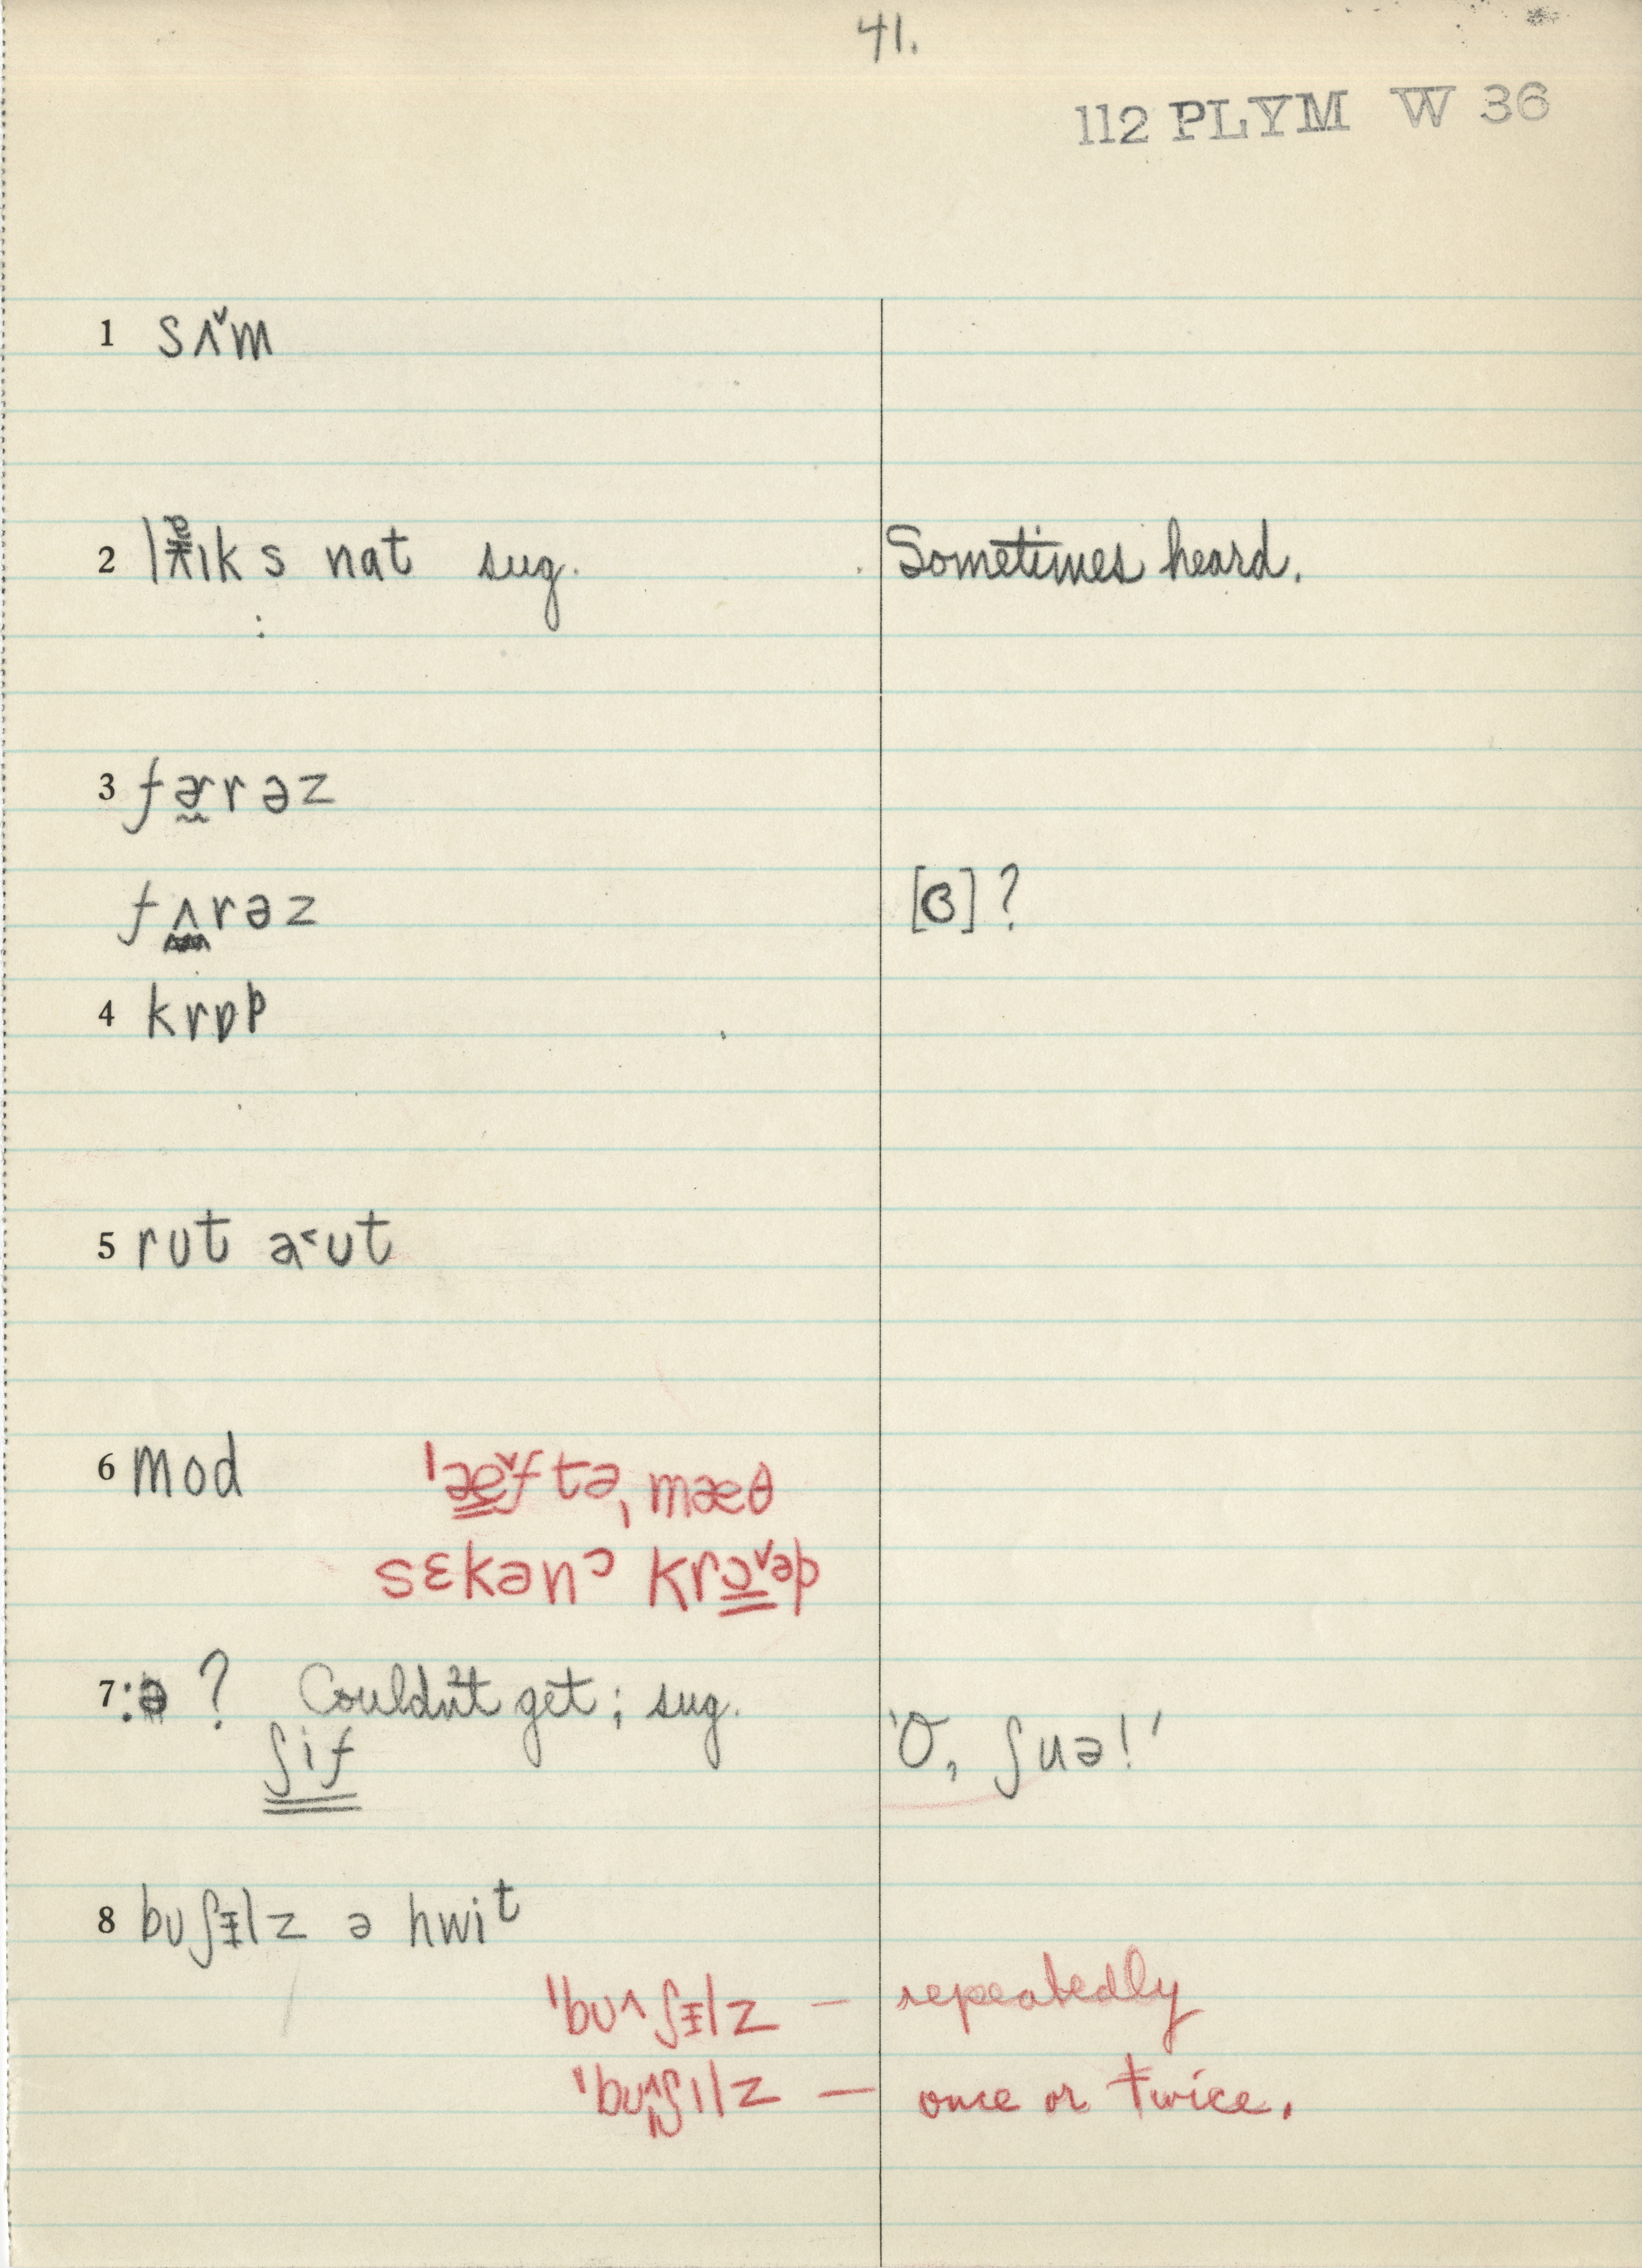 41.
112 PLYM W 36
1 sʌ̌m
2 s nat sug. Sometimes heard.
3 fɚ̰rəz
fʌrəz [ɞ]?
4 krɒp
5 rut a˂ʊt
6 mod ˈæ̳ˇftəˌmæθ
sɛkənᵓ krɔ̳ˇəp
7 :ə ? Couldn't get; sug. 'O, ʃuə!'
ʃif
8 bʊʃɪ̵lz ə hwit
ˈbʊ˄ʃɪ̵lz — repeatedly
ˈbʊ˄ʃɪlz — once or twice.